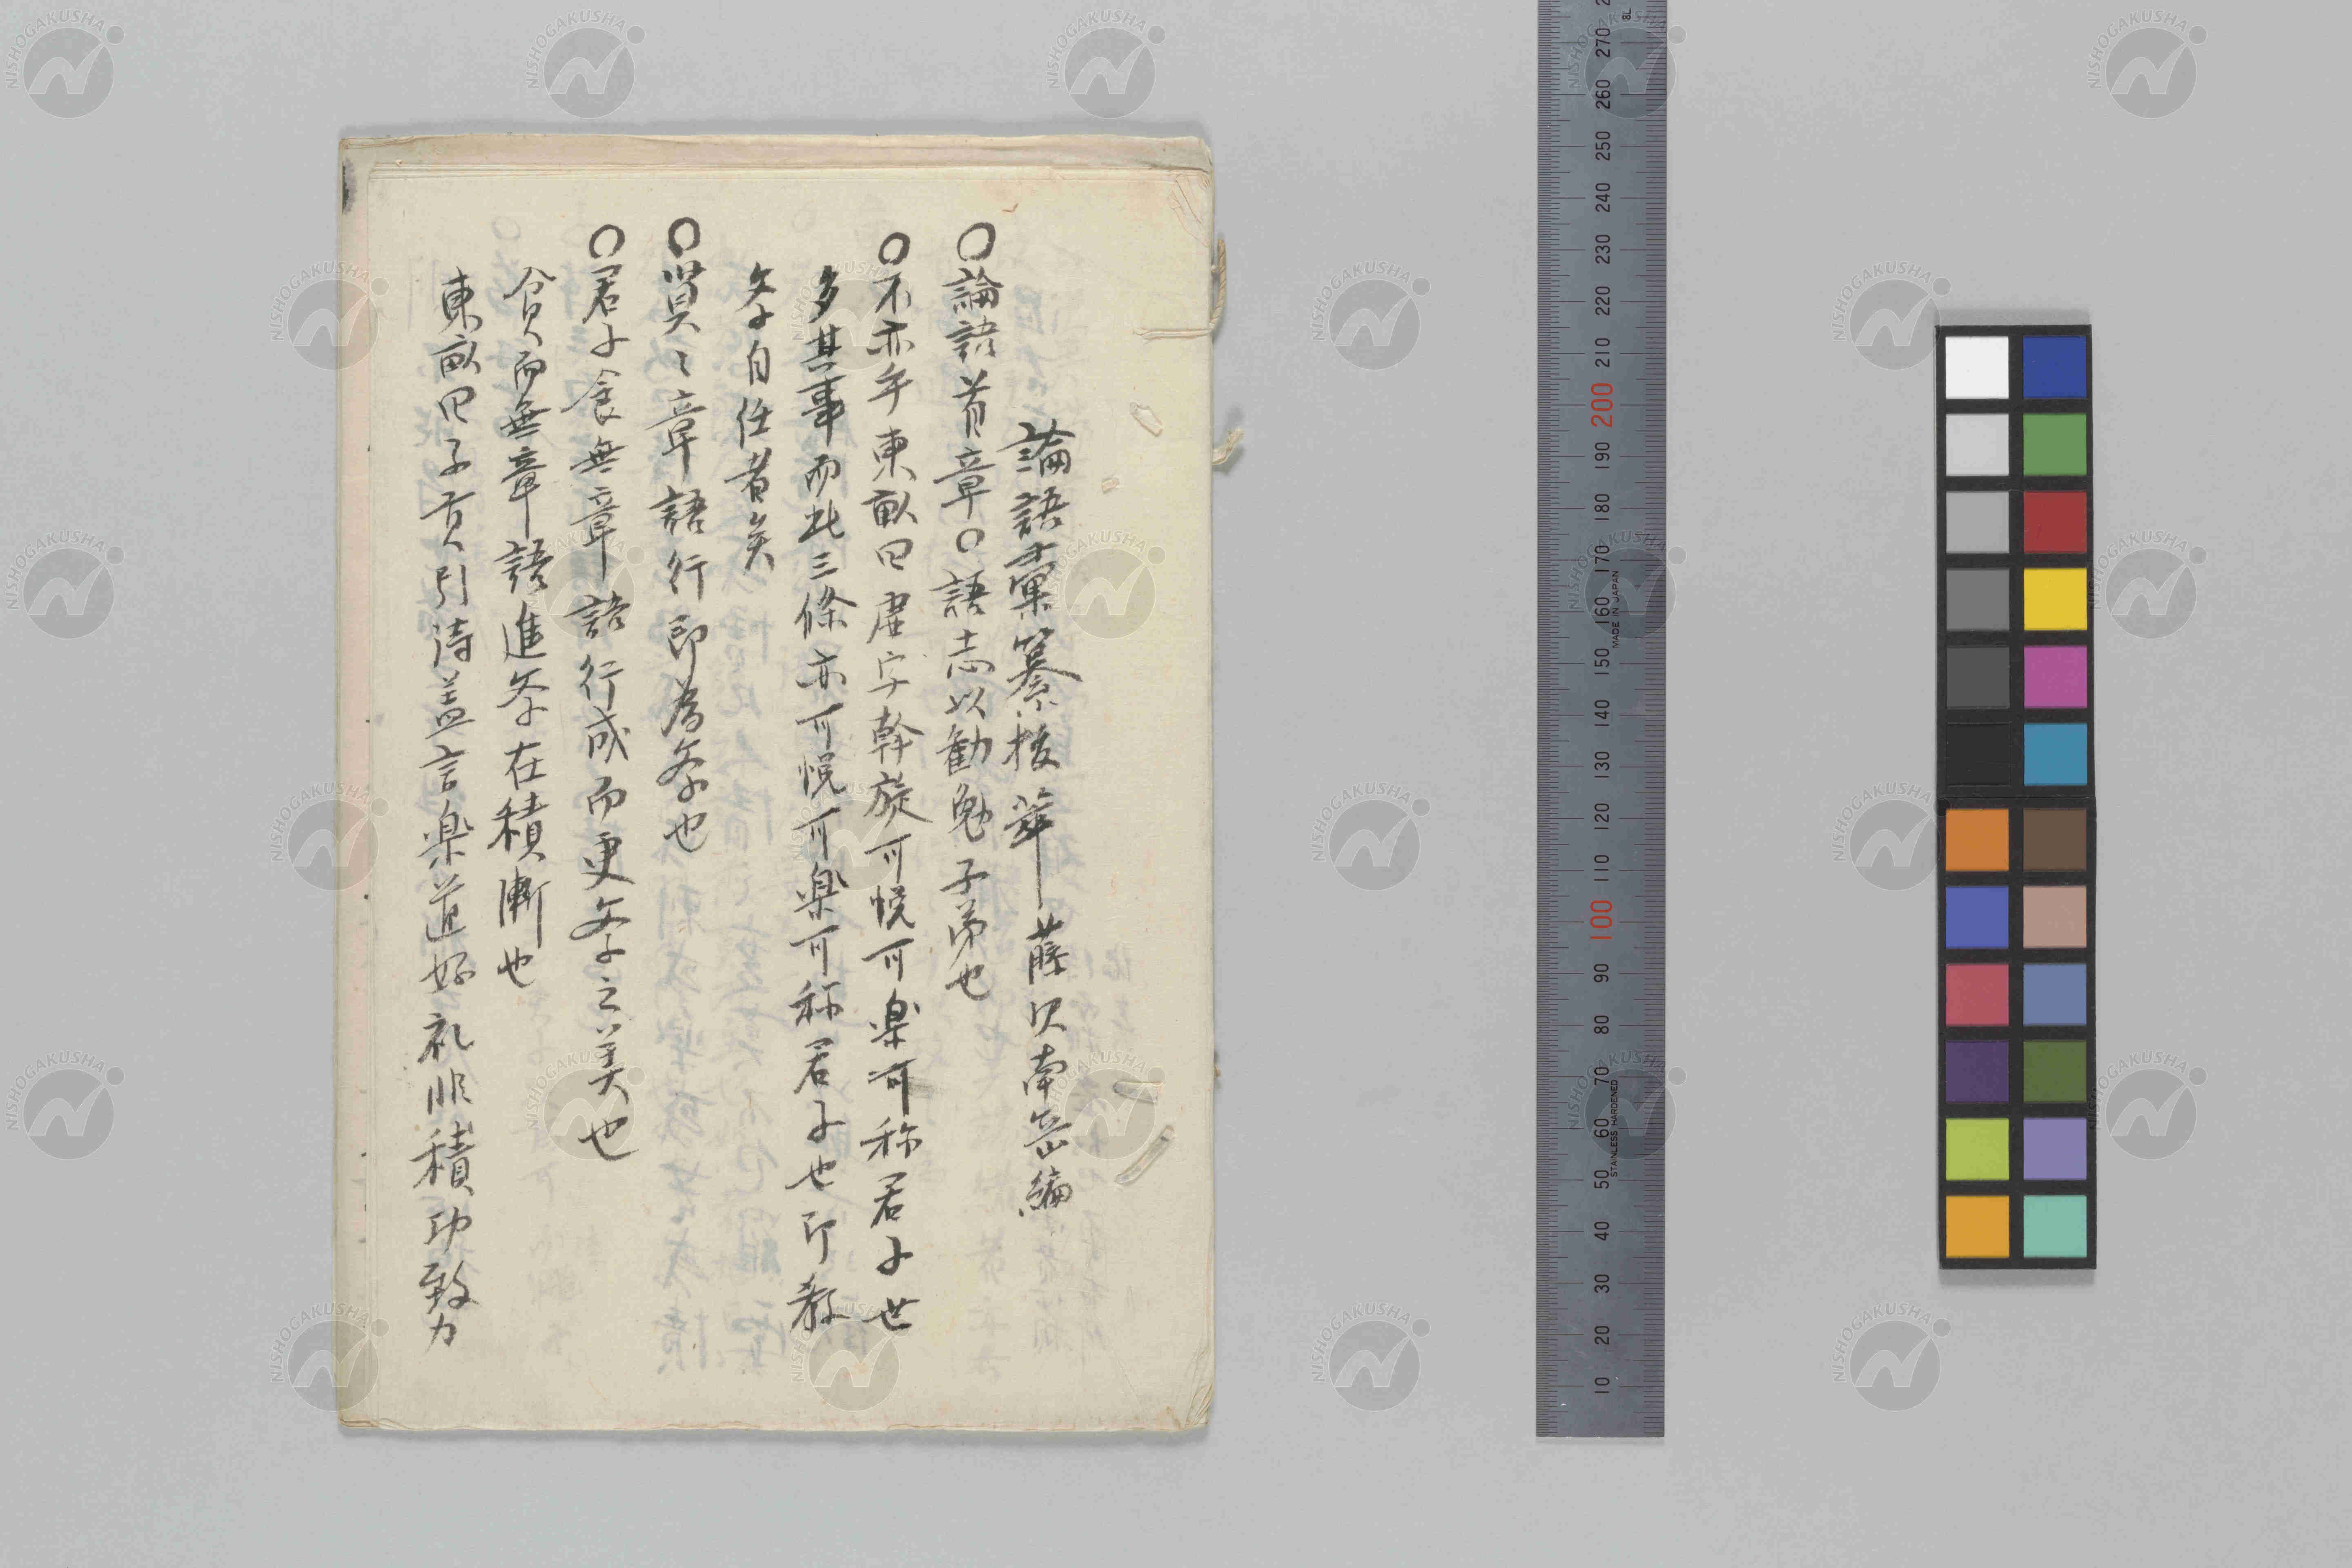 論語彙纂抜萃 藤沢南岳編
○論語首章○語志以勧勉子弟也
○不亦乎東畝曰虚字斡旋可悦可楽可称君子世
多其事而此三條亦可悦可楽可称君子也即教
斈自任者矣
○賢〻章語行即為斈也
○君子食無章語行成而更斈之美也
貧而無章語進斈在積漸也
東畝曰子貢引詩蓋言楽道好礼非積功致力